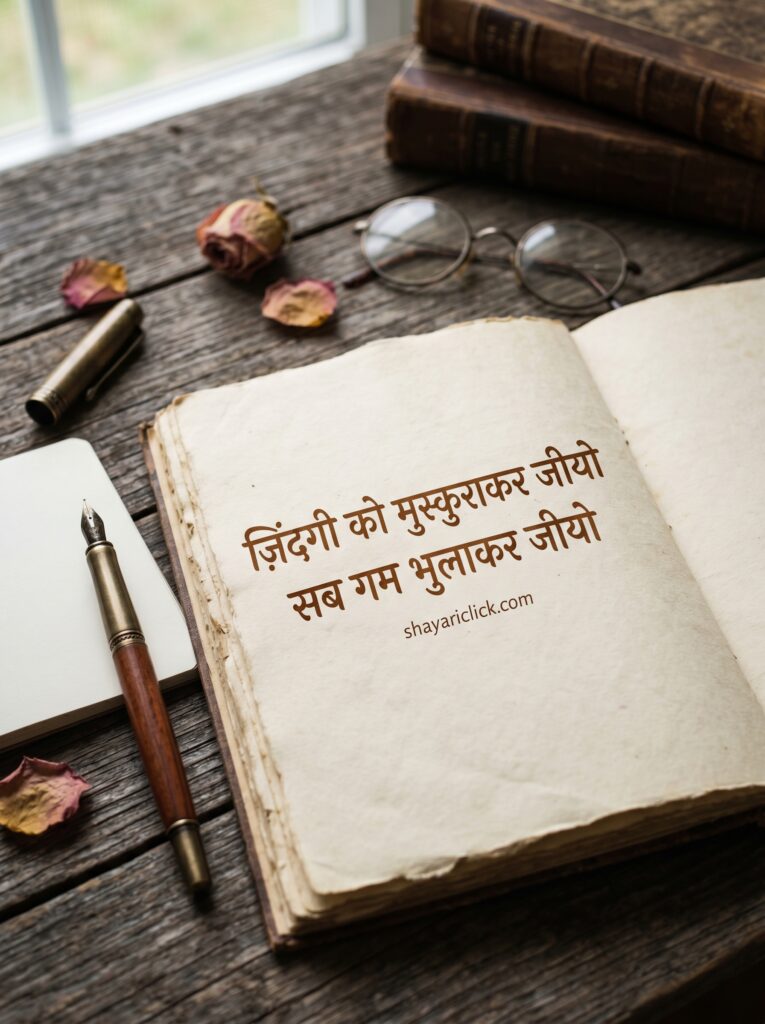 ज़िंदगी को मुस्कुराकर जीयो
सब गम भुलाकर जीयो
shayariclick.com